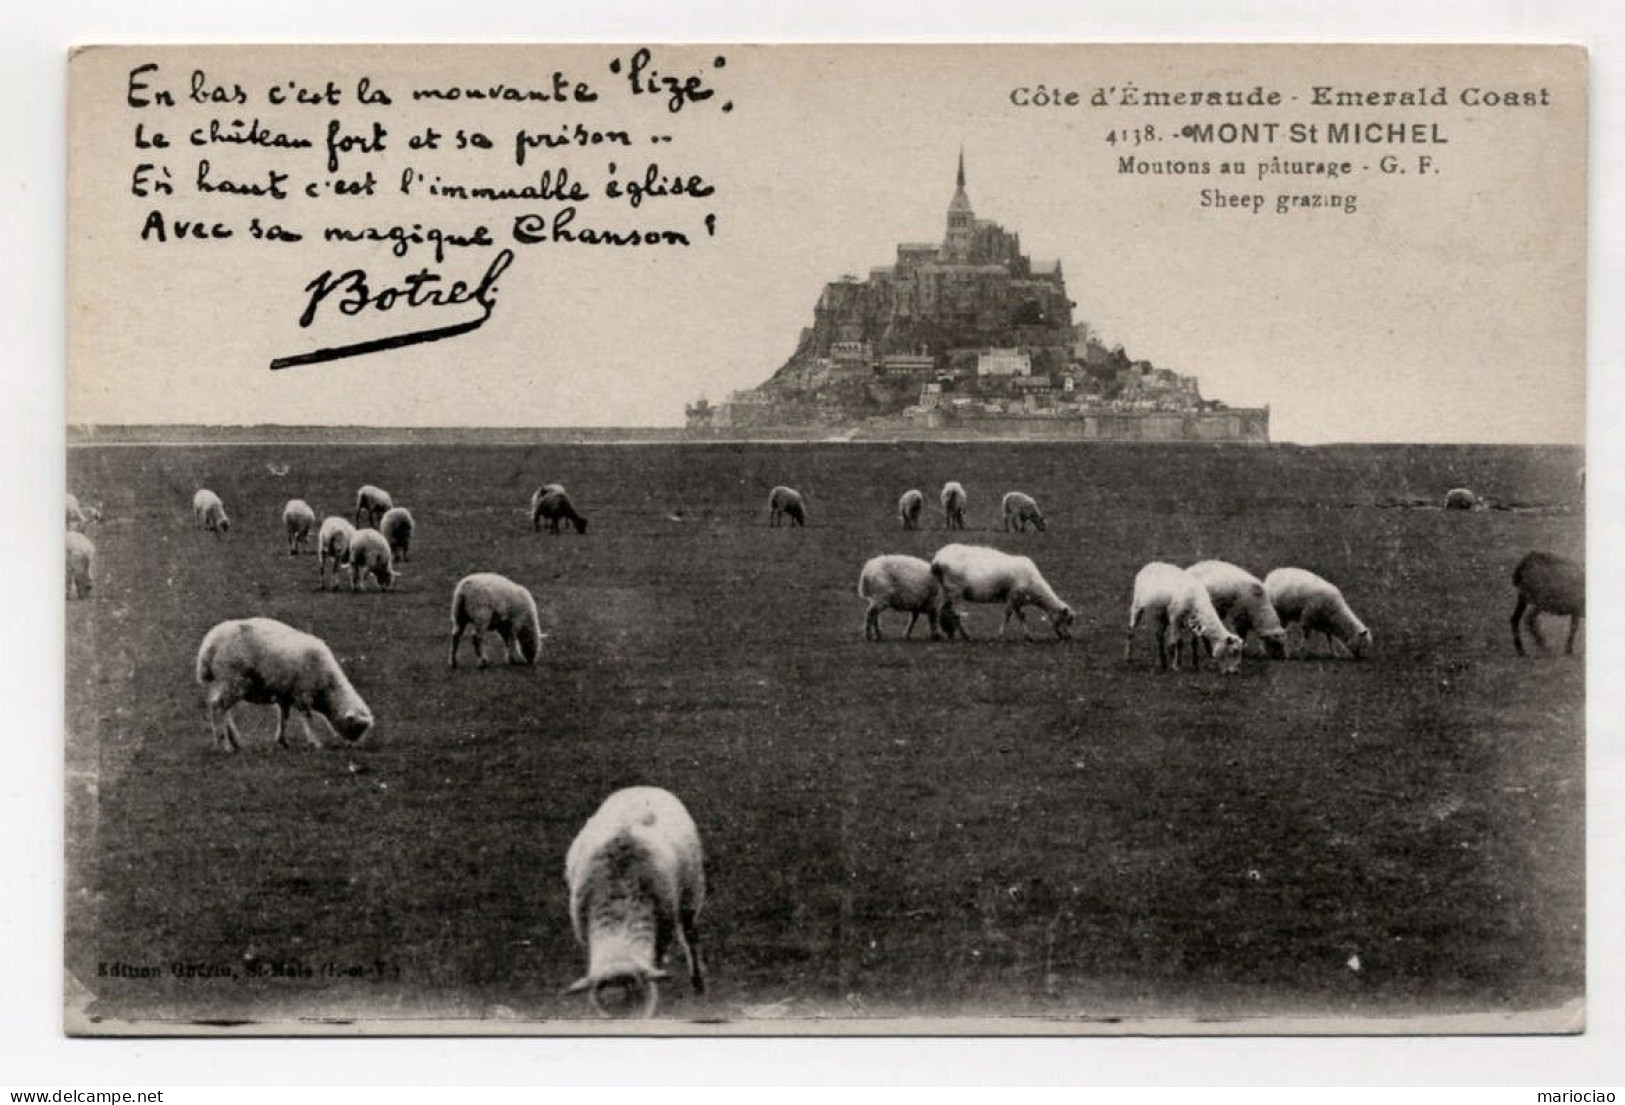 En bas c'est la mouvante "lize",
Le château fort et sa prison ..
En haut c'est l'immuable église
Avec sa magique Chanson !
Botrel
Côte d'Émeraude - Emerald Coast
4138. - MONT St MICHEL
Moutons au pâturage - G. F.
Sheep grazing
Edition Guérin, St-Malo (I.-et-V.)
delcampe.net
mariociao